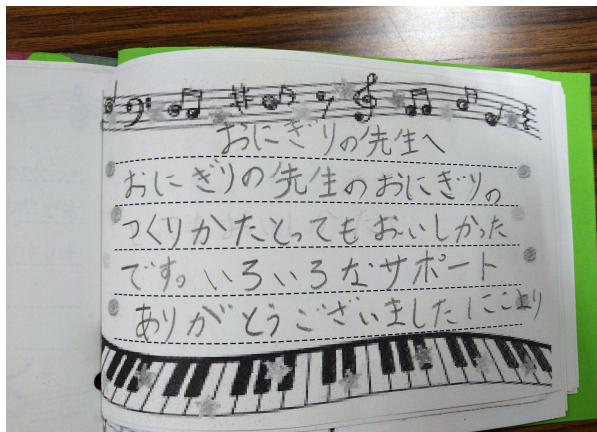 おにぎりの先生へ
おにぎりの先生のおにぎりの
つくりかたとってもおいしかった
です。いろいろなサポート
ありがとうございましたにこより